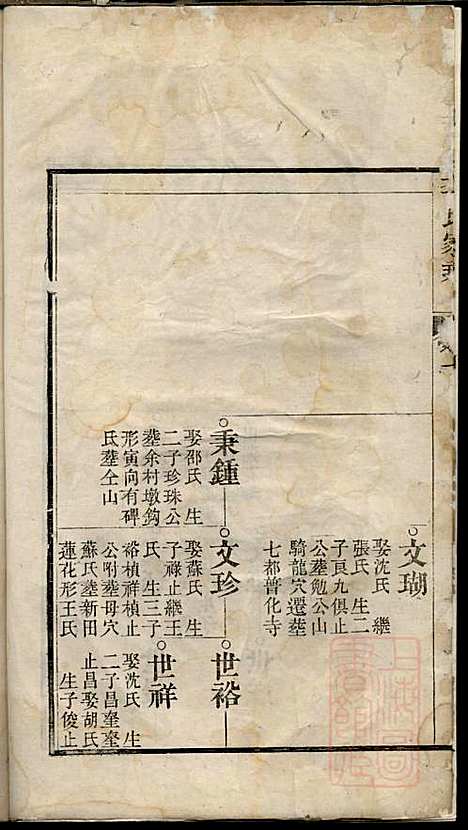 文瑚
娶沈氏繼
張氏生二
子亰九俱止
公葬勉公山
騎龍穴遷葬
七都普化寺
秉鍾
娶邵氏生
二子珍珠公
葬余村墩鈎
形寅向有碑
氏葬仝山
文珍
娶蘇氏生
子祿止繼王
氏生三子
裕楨祥楨止
公附葬母穴
蘇氏葬新田
蓮花形王氏
世裕
世祥
娶沈氏生
二子昌奎奎
止昌娶胡氏
生子俊止